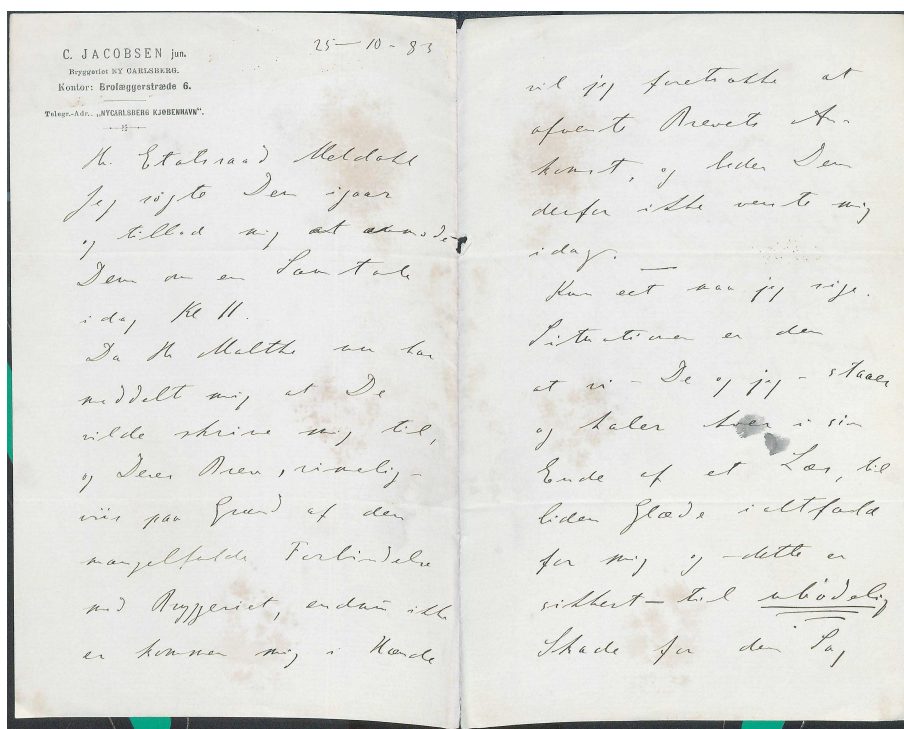 C. JACOBSEN jun.
Bryggeriet NY CARLSBERG.
Kontor: Brolæggerstræde 6.
Telegr.-Adr.: „NYCARLSBERG KJØBENHAVN".
25–10–83
Hr. Etatsraad Meldahl
Jeg søgte Dem igaar
og tillod mig at anmode
Dem om en Samtale
idag Kl 11.
Da Hr Malthe nu har
meddelt mig at De
vilde skrive mig til,
og Deres Brev, rimelig-
viis paa Grund af den
mangelfulde Forbindelse
med Bryggeriet, endnu ikke
er kommen mig i Hænde
vil jeg foretrække at
afvente Brevets An-
komst, og beder Dem
derfor ikke vente mig
idag.
Kun eet maa jeg sige.
Situationen er den
at vi – De og jeg – staaer
og haler hver i sin
Ende af et Læs, til
liden Glæde ialtfald
for mig og – dette er
sikkert – til ubødelig
Skade for den Sag